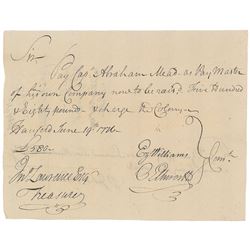 Sir
Pay Capt Abraham Mead as Pay Master
of his own Company now to be raisd Five Hundred
& Eighty pounds & charge the Colony
Hartford June 19. 1776
£580
Jno Lawrence Esqr
Treasurer
Ez Williams
Comtt